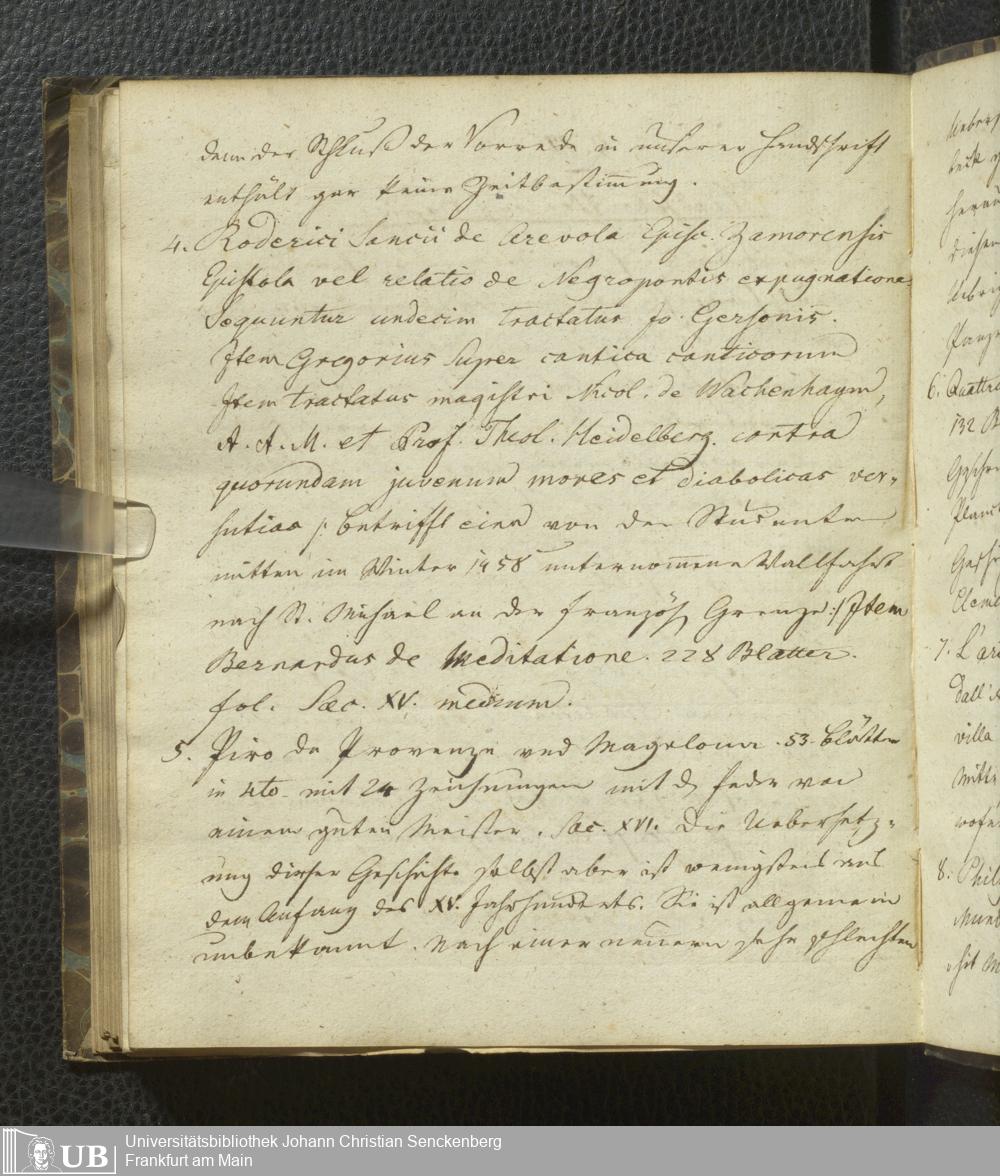 denn der Schluß der Vorrede in unserer Handschrift
enthält gar keine Zeitbestim̅ung.
4. Roderici Sancii de Arevola Episc. Zamorensis
Epistola vel relatio de Negropontis expugnatione
Sequuntur undecim tractatus Jo. Gersonis.
Item Gregorius super cantica canticorum
Item tractatus magistri Nicol. de Wachenhaym,
A. A. M. et Prof. Theol. Heidelberg. contra
quorundam juvenum mores et diabolicas ver-
sutias /: betrifft eine von den Studenten
mitten im Winter 1458 unternom̅ene Wallfahrt
nach St. Michael an der französ. Grenze :/ Item
Bernardus de Meditatione. 228 Blätter.
fol. Sæc. XV. medium.
5. Piro da Provenze und Magelona. 53. Blätter
in 4to. mit 24 Zeichnungen mit d. Feder von
einem guten Meister. Sæc. XVI. Die Uebersetz-
ung dieser Geschichte selbst aber ist wenigstens aus
dem Anfang des XV. Jahrhunderts. Sie ist allgemein
unbekannt. Nach einer neuern sehr schlechten
6. Quattro
132 B
7. L'ar
dall'
villa
8. Phil
Universitätsbibliothek Johann Christian Senckenberg
Frankfurt am Main
UB